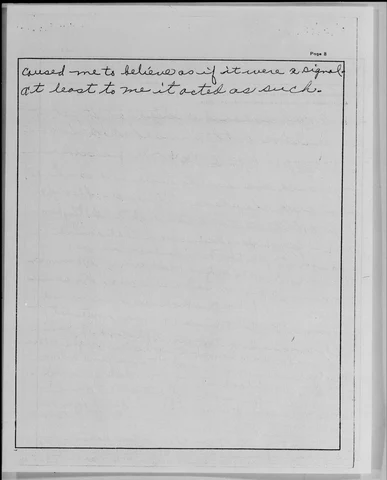 Page 8
caused me to believe as if it were a signal.
at least to me it acted as such.